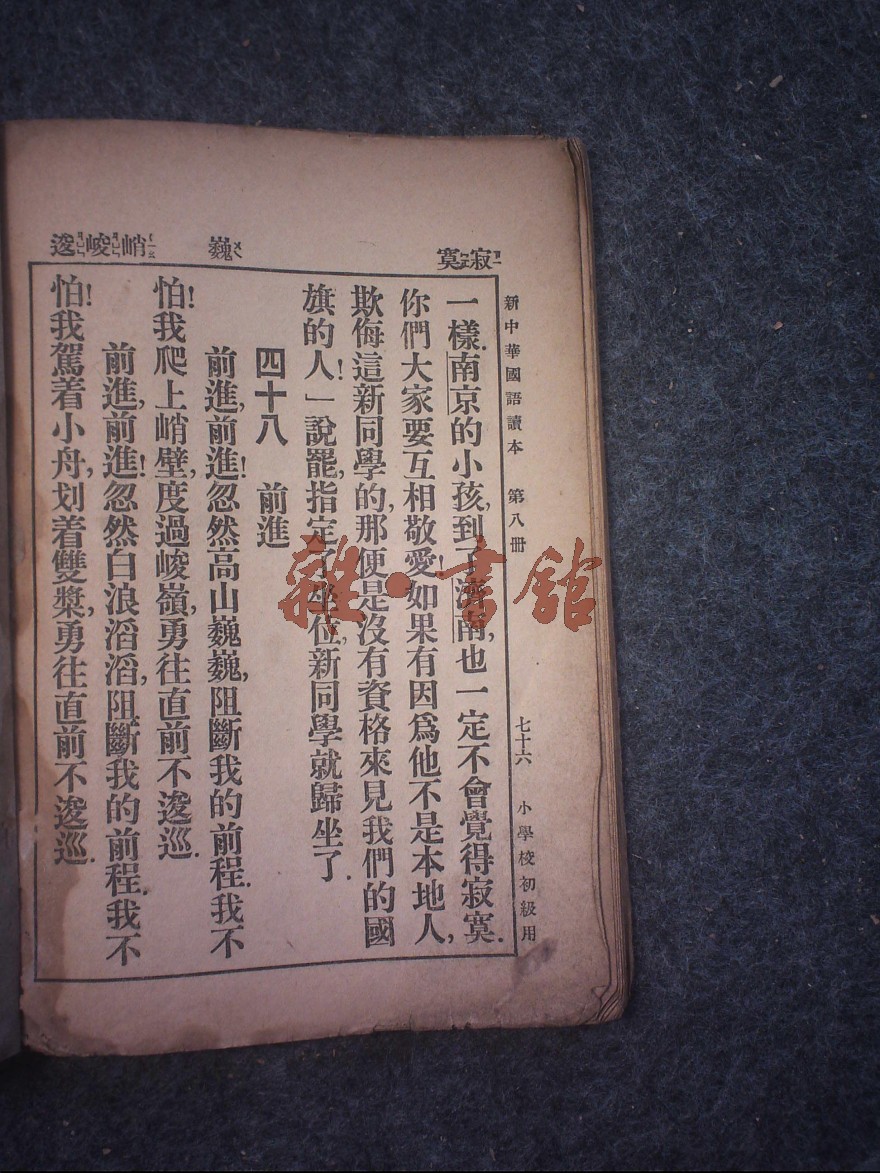 新中華國語讀本 第八册 七十六 小學校初級用
寂寞
巍
峭峻逡
一樣.南京的小孩,到了濟南,也一定不會覺得寂寞.
你們大家要互相敬愛!如果有因爲他不是本地人,
欺侮這新同學的,那便是沒有資格來見我們的國
旗的人!」說罷,指定了坐位,新同學就歸坐了.
四十八 前進
前進,前進!忽然高山巍巍,阻斷我的前程.我不
怕!我爬上峭壁,度過峻嶺,勇往直前不逡巡.
前進,前進!忽然白浪滔滔,阻斷我的前程.我不
怕!我駕着小舟,划着雙槳,勇往直前不逡巡.
雜·書館